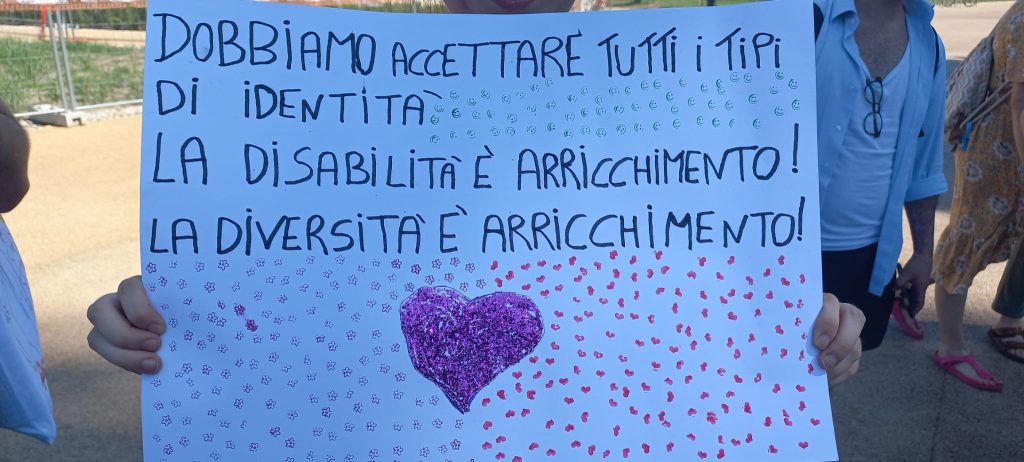 DOBBIAMO ACCETTARE TUTTI I TIPI
DI IDENTITÀ
LA DISABILITÀ È ARRICCHIMENTO!
LA DIVERSITÀ È ARRICCHIMENTO!